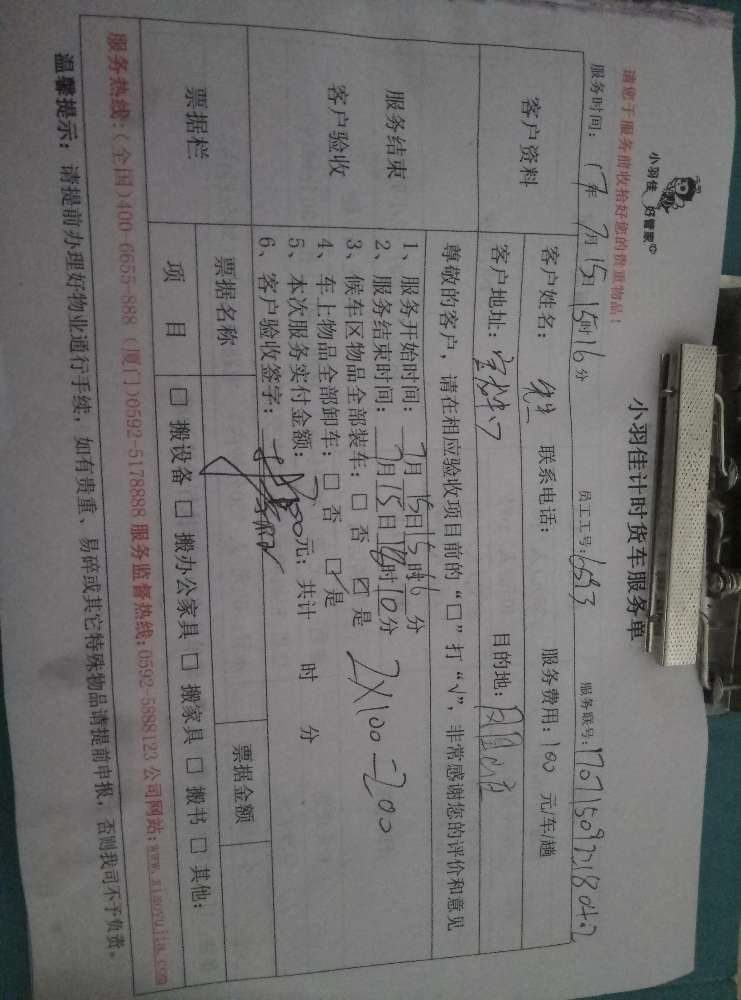 小羽佳 好管家
请您于服务前收拾好您的贵重物品！
小羽佳计时货车服务单
服务时间：17年 7月 15日 15时 16分 员工工号：6693 服务联号：
客户资料
客户姓名： 联系电话： 服务费用：100 元/车/趟
客户地址： 目的地：
服务结束
客户验收
尊敬的客户，请在相应验收项目前的“□”打“√”，非常感谢您的评价和意见
1、服务开始时间：7月15日15时16分
2、服务结束时间：7月15日18时10分
3、候车区物品全部装车：□ 否 ☑ 是
4、车上物品全部卸车：□ 否 ☑ 是
5、本次服务实付金额：200元；共计 时 分
2×100=200
6、客户验收签字：
票据栏
票据名称 票据金额
项 目 □ 搬设备 □ 搬办公家具 □ 搬家具 □ 搬书 □ 其他：
服务热线：(全国)400-6655-888 (厦门)0592-5178888 服务监督热线:0592-5888123 公司网站:www.xiaoyujia.com
温馨提示：请提前办理好物业通行手续，如有贵重、易碎或其它特殊物品请提前申报，否则我司不予负责。